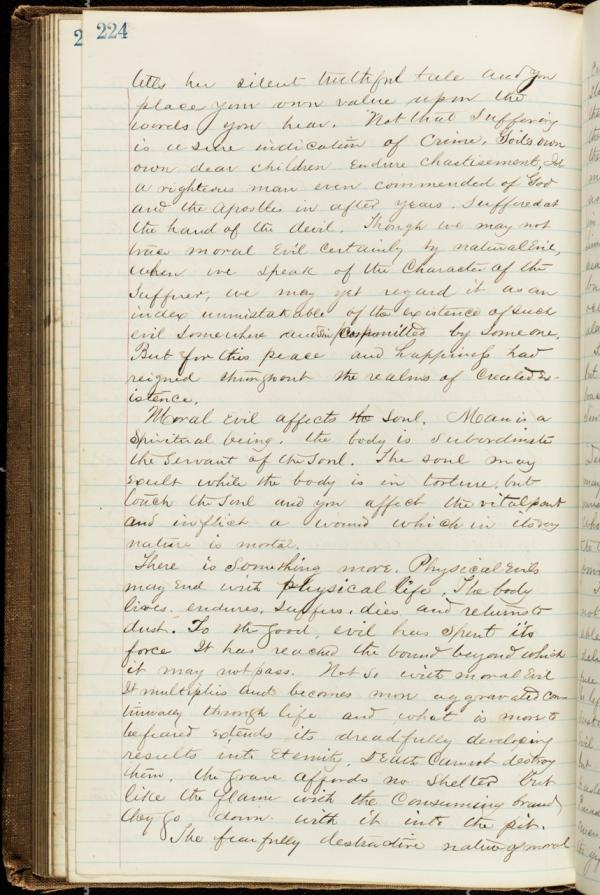 224
tells her silent truthful tale and you
place your own value upon the
words you hear. Not that Suffering
is a sure indication of Crime. God's own
own dear children Endure chastisement,
a righteous man even commended of God
and the Apostles in after years. Suffered at
the hand of the devil. Though we may not
trace moral Evil certainly by natural Evil,
when we speak of the Character of the
Sufferer, we may yet regard it as an
index unmistakable of the existence of such
evil Somewhere and Sin committed by Someone.
But for this peace and happiness had
reigned throughout the realms of Created Ex-
istence.
Moral Evil affects the Soul. Man is a
Spiritual being. the body is Subordinate
the Servant of the Soul. The soul may
exult while the body is in torture, but
touch the Soul and you affect the vital part
and inflict a wound which in its very
nature is mortal.
There is Something more. Physical Evils
may End with physical life. The body
lives, endures, Suffers, dies and returns to
dust. To the good, evil has Spent its
force It has reached the bound beyond which
it may not pass. Not So with moral Evil
It multiplies and becomes more aggravated con-
tinually through life and what is more to
be feared extends its dreadfully developing
results into Eternity. Death Cannot destroy
them. the grave affords no Shelter but
like the flame with the Consuming brand
they go down with it into the pit.
The fearfully destructive nature of moral